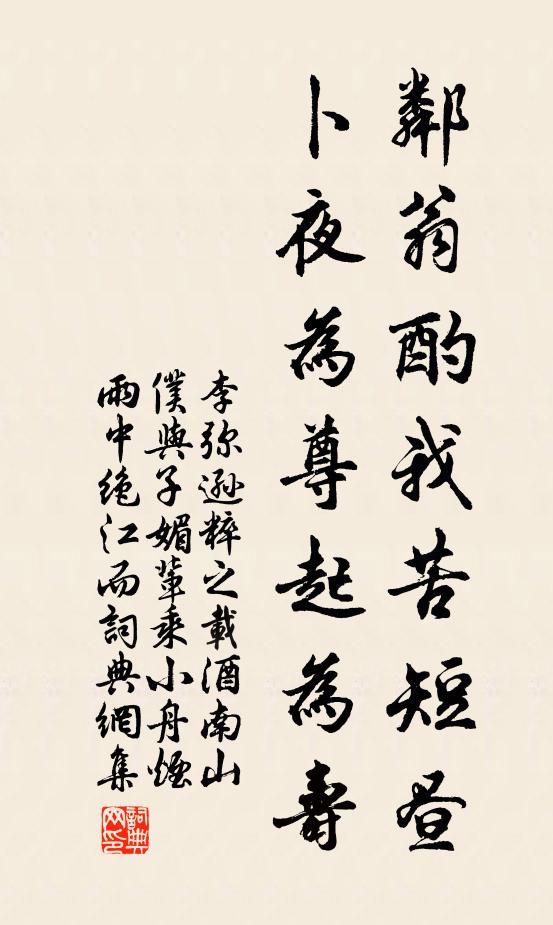 鄰翁酌我苦短晝
卜夜為尊起為壽
李弥遜粹之載酒南山
僕與子媚輩乘小舟煙
雨中絶江而詞典網集
詞典網印